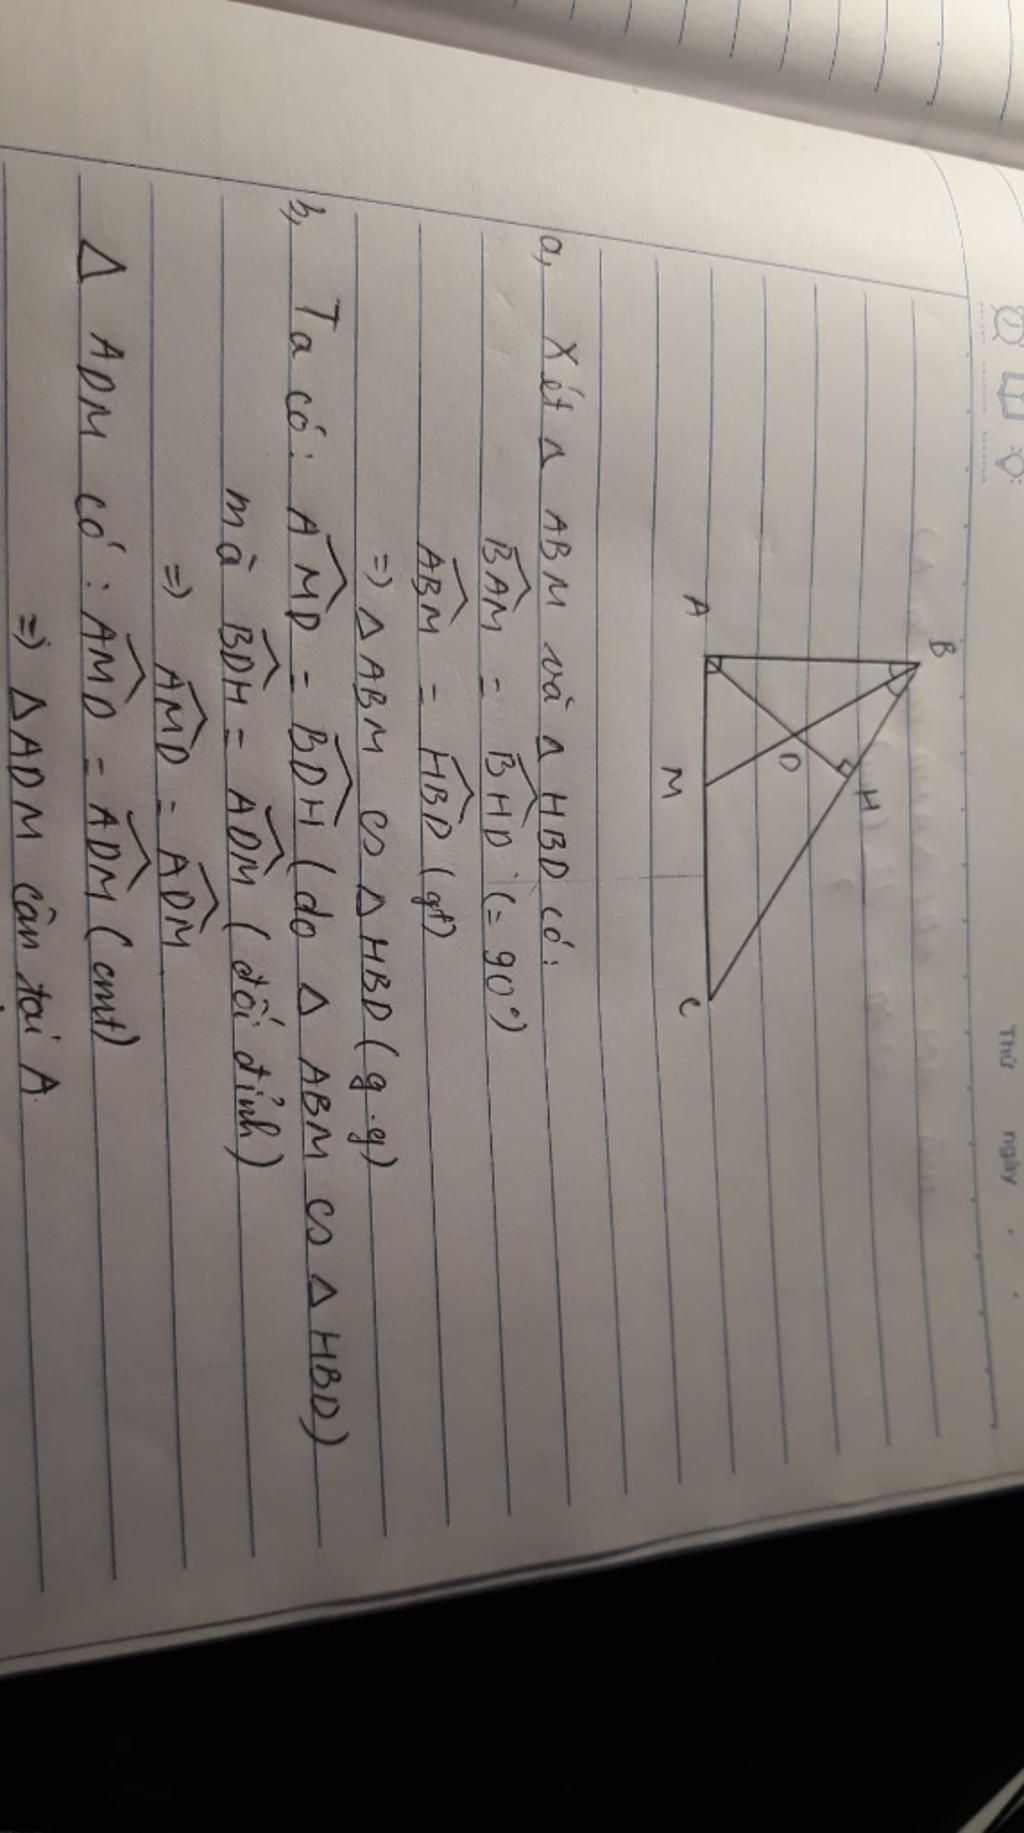 Thứ ngày
B
H
D
A
M
C
a, Xét Δ ABM và Δ HBD có:
BAM = BHD (= 90°)
ABM = HBD (gt)
=> Δ ABM ∽ Δ HBD (g.g)
b, Ta có: AMD = BDH (do Δ ABM ∽ Δ HBD)
mà BDH = ADM (đối đỉnh)
=> AMD = ADM
Δ ADM có: AMD = ADM (cmt)
=> Δ ADM cân tại A.